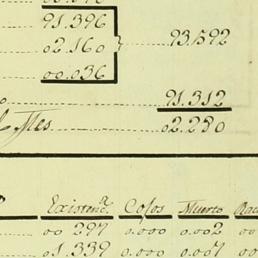 91.396
02.160 93.592
00.036
91.312
Mes 02.280
Existenc.ª Cojos Muerto
00 297 0.000 0.002 00
01.339 0.000 0.007 00